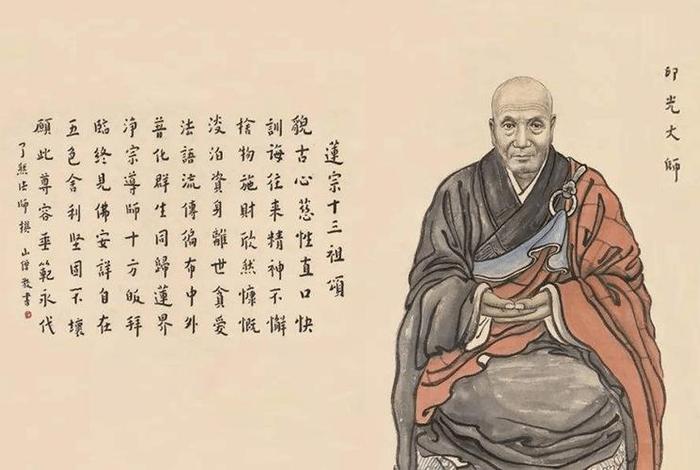 印光大師
蓮宗十三祖頌
貌古心慈性直口快
訓誨往来精神不懈
捨物施財欣然慷慨
淡泊資身離世貪愛
法語流傳徧布中外
普化群生同歸蓮界
淨宗導師十方皈拜
臨終見佛安詳自在
五色舍利堅固不壞
願此尊容垂範永代
了然法師撰 山僧敬書